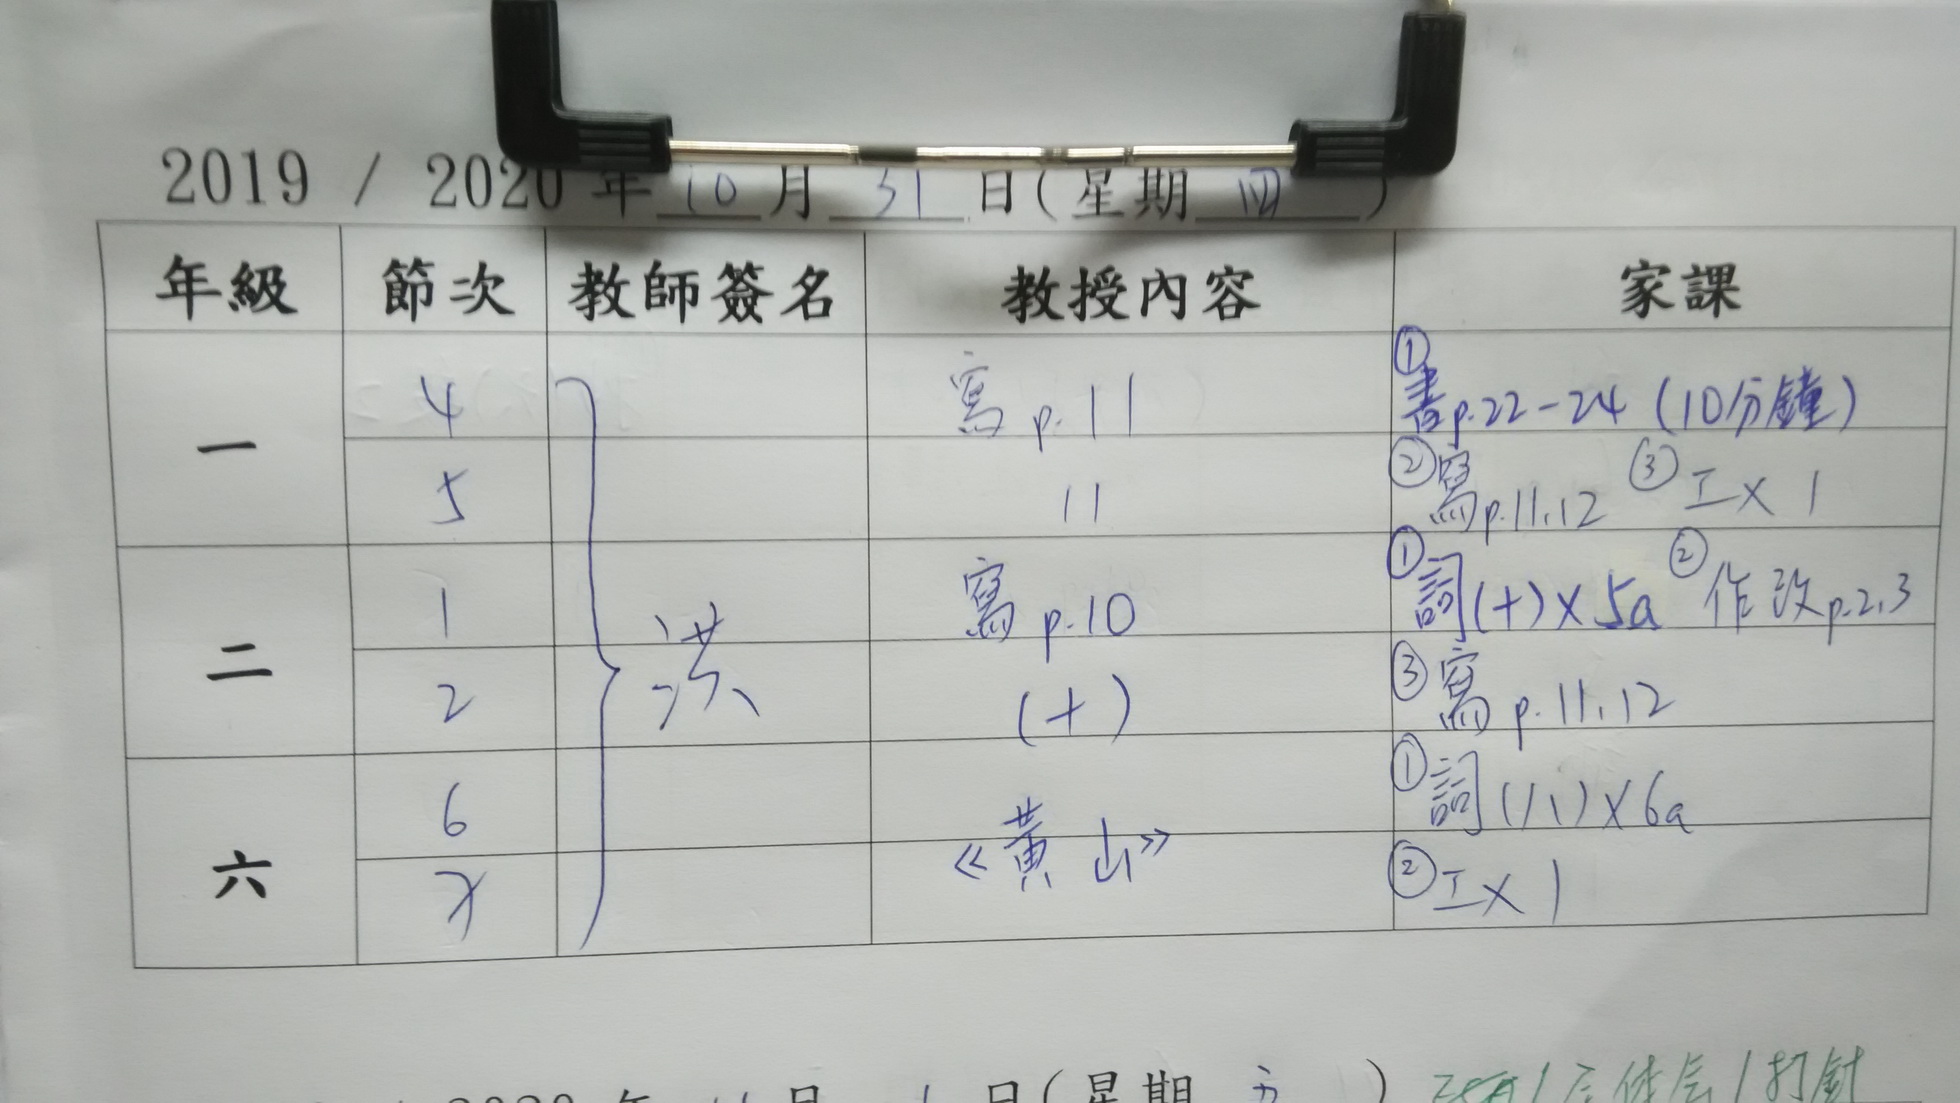 2019 / 2020 年 10 月 31 日(星期 四 )
年級 節次 教師簽名 教授內容 家課
一 4 寫 p.11 ①書p.22-24 (10分鐘)
5 11 ②寫p.11,12 ③工×1
二 1 洪 寫 p.10 ①詞(十)×5a ②作改p.2,3
2 (十) ③寫 p.11,12
六 6 《黃山》 ①詞(八)×6a
7 ②工×1
2020 年 11 月 1 日(星期 五 ) /打針